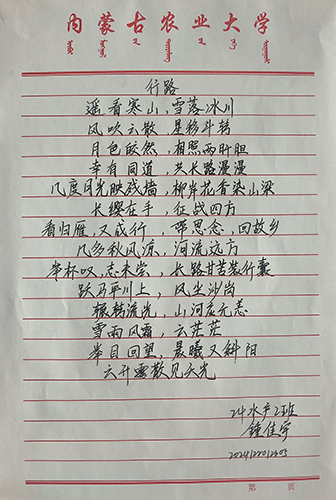 内蒙古农业大学
行路
遥看寒山，雪落冰川
风吹云散，星移斗转
月色皎然，相照两肝胆
幸有同道，共长路漫漫
几度月光映残墙，柳岸花香染山梁
长缨在手，征战四方
看归雁，又成行，带思念，回故乡
几多秋风凉，润流远方
举杯叹，志未尝，长路甘苦装行囊
跃马平川上，风尘沙岗
辗转流光，山河应无恙
雪雨风霜，云茫茫
举目回望，晨曦又斜阳
云开雾散见天光
24水产2班
钟佳宇
第 页